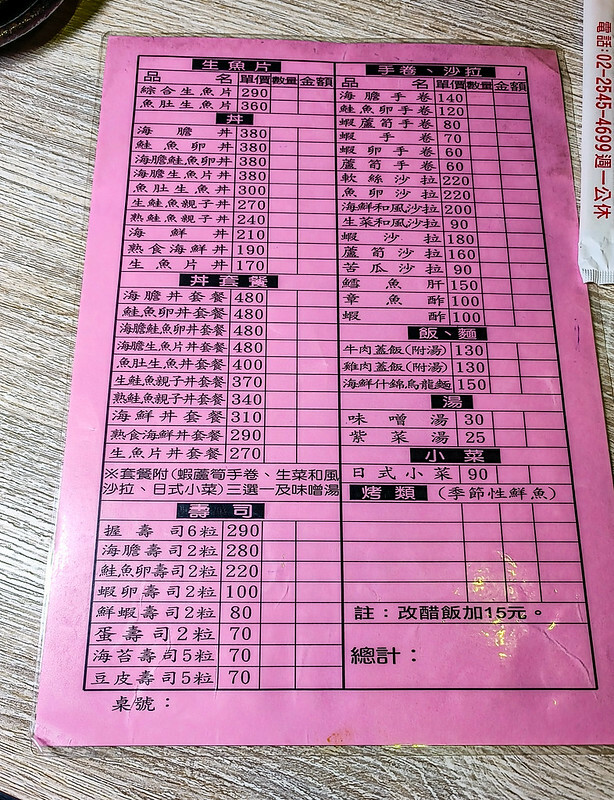 生魚片
品名 單價 數量 金額
綜合生魚片 290
魚肚生魚片 360
丼
海膽丼 380
鮭魚卵丼 380
海膽鮭魚卵丼 380
海膽生魚片丼 380
魚肚生魚丼 300
生鮭魚親子丼 270
熟鮭魚親子丼 240
海鮮丼 210
熟食海鮮丼 190
生魚片丼 170
丼套餐
海膽丼套餐 480
鮭魚卵丼套餐 480
海膽鮭魚卵丼套餐 480
海膽生魚片丼套餐 480
魚肚生魚丼套餐 400
生鮭魚親子丼套餐 370
熟鮭魚親子丼套餐 340
海鮮丼套餐 310
熟食海鮮丼套餐 290
生魚片丼套餐 270
※套餐附(蝦蘆筍手卷、生菜和風
沙拉、日式小菜)三選一及味噌湯
壽司
握壽司6粒 290
海膽壽司2粒 280
鮭魚卵壽司2粒 220
蝦卵壽司2粒 100
鮮蝦壽司2粒 80
蛋壽司2粒 70
海苔壽司5粒 70
豆皮壽司5粒 70
桌號：
手卷、沙拉
品名 單價 數量 金額
海膽手卷 140
鮭魚卵手卷 120
蝦蘆筍手卷 80
蝦手卷 70
蝦卵手卷 60
蘆筍手卷 60
軟絲沙拉 220
魚卵沙拉 220
海鮮和風沙拉 200
生菜和風沙拉 90
蝦沙拉 180
蘆筍沙拉 160
苦瓜沙拉 90
鱈魚肝 150
章魚酢 100
蝦酢 100
飯、麵
牛肉蓋飯(附湯) 130
雞肉蓋飯(附湯) 130
海鮮什錦烏龍麵 150
湯
味噌湯 30
紫菜湯 25
小菜
日式小菜 90
烤類 (季節性鮮魚)
註：改醋飯加15元。
總計：
電話:02-2545-4699週一公休